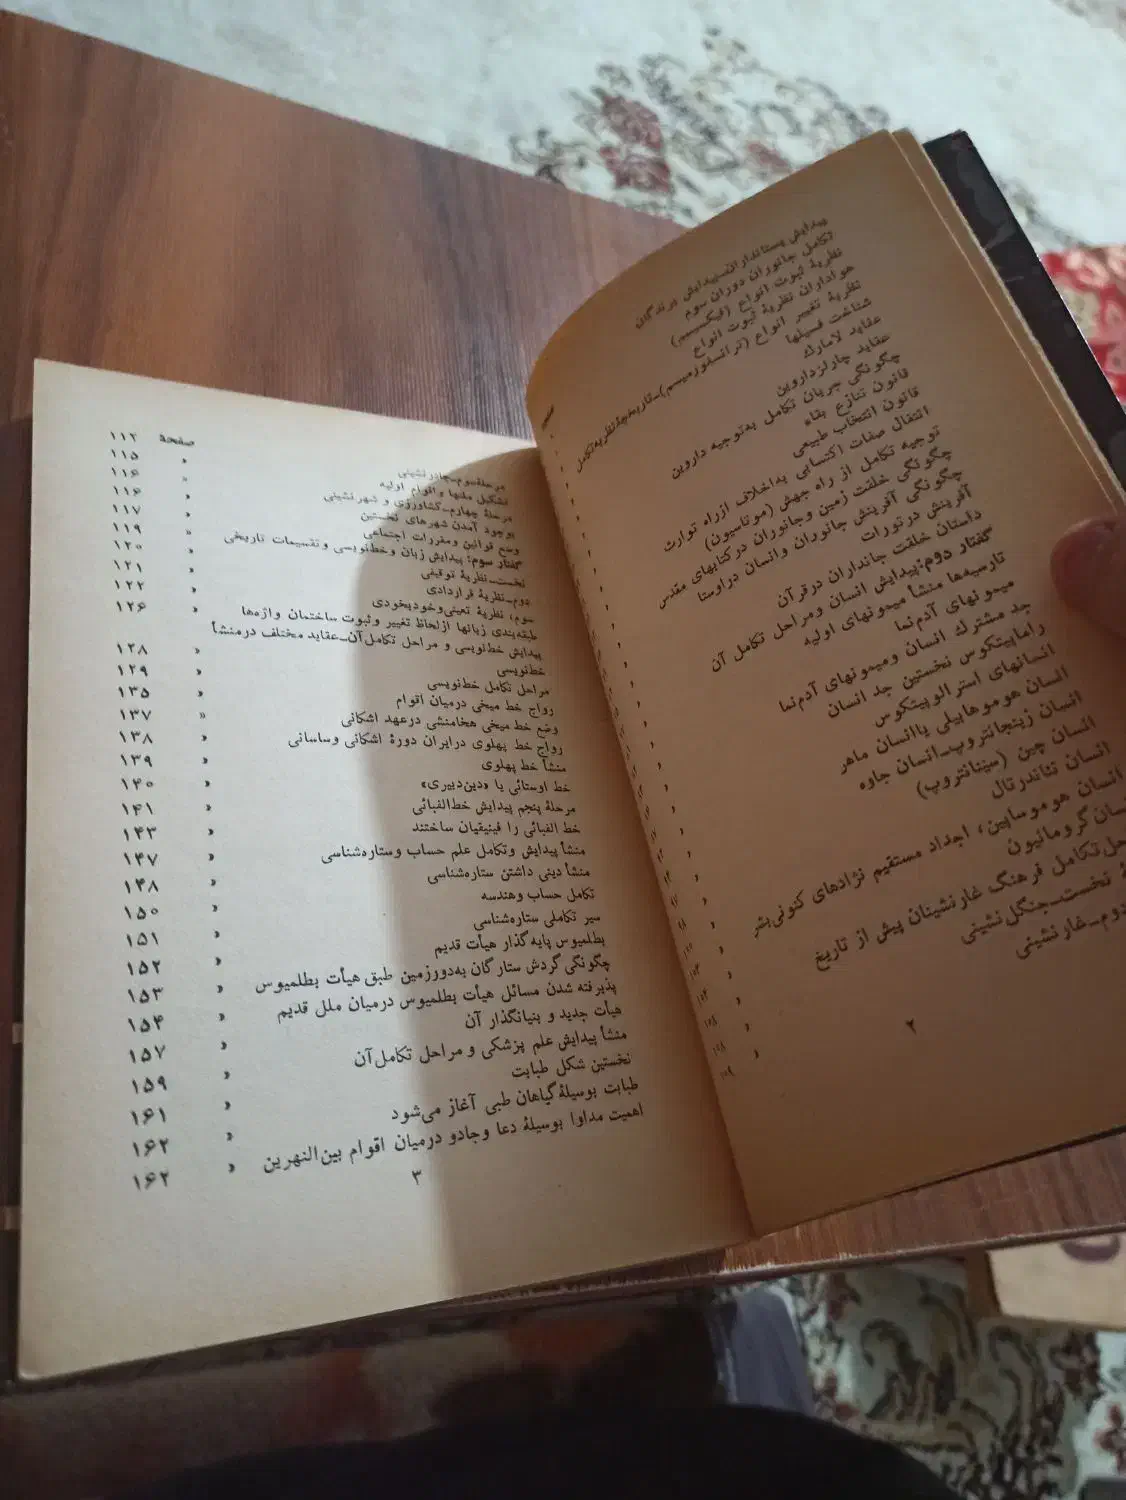 پیدایش پستانداران_پیدایش پرندگان
تکامل جانوران دوران سوم
نظریهٔ ثبوت انواع (فیکسیسم)
هواداران نظریهٔ ثبوت انواع
نظریهٔ تغییر انواع (ترانسفورمیسم)_تاریخچهٔ نظریه تکامل
شناخت فسیلها
عقاید لامارک
عقاید چارلز داروین
چگونگی جریان تکامل به‌توجیه داروین
قانون تنازع بقاء
قانون انتخاب طبیعی
انتقال صفات اکتسابی به‌اخلاف ازراه توارث
توجیه تکامل از راه جهش (موتاسیون)
چگونگی خلقت زمین وجانوران درکتابهای مقدس
چگونگی آفرینش جانوران وانسان دراوستا
آفرینش درتورات
داستان خلقت جانداران درقرآن
گفتار دوم: پیدایش انسان ومراحل تکامل آن
تارسیه‌ها منشأ میمونهای اولیه
میمونهای آدم‌نما
جد مشترک انسان ومیمونهای آدم‌نما
راماپیتکوس نخستین جد انسان
انسانهای استرالوپیتکوس
انسان هوموهابیلی یاانسان ماهر
انسان زینجانتروپ_انسان جاوه
انسان چین (سینانتروپ)
انسان نئاندرتال
انسان هوموساپین، اجداد مستقیم نژادهای کنونی‌بشر
انسان کرومانیون
تکامل فرهنگ غارنشینان پیش از تاریخ
نخست_جنگل‌نشینی
دوم_غارنشینی
۲
صفحهٔ ۱۱۲
مرحلهٔ‌سوم_چادرنشینی » ۱۱۵
تشکیل ملتها و اقوام اولیه » ۱۱۶
مرحلهٔ چهارم_کشاورزی و شهرنشینی » ۱۱۶
بوجود آمدن شهرهای نخستین » ۱۱۷
وضع قوانین ومقررات اجتماعی » ۱۱۹
گفتار سوم: پیدایش زبان وخط‌نویسی وتقسیمات تاریخی » ۱۲۰
نخست_نظریهٔ توقیفی » ۱۲۱
دوم_نظریهٔ قراردادی » ۱۲۲
سوم، نظریهٔ تعینی‌وخودبخودی » ۱۲۶
طبقه‌بندی زبانها ازلحاظ تغییر وثبوت ساختمان واژه‌ها
پیدایش خط‌نویسی و مراحل تکامل‌آن_عقاید مختلف درمنشأ
خط‌نویسی » ۱۲۸
مراحل تکامل خط‌نویسی » ۱۲۹
رواج خط میخی درمیان اقوام » ۱۳۵
وضع خط میخی هخامنشی درعهد اشکانی » ۱۳۷
رواج خط پهلوی درایران دورهٔ اشکانی وساسانی » ۱۳۸
منشأ خط پهلوی » ۱۳۹
خط اوستائی یا «دین‌دبیری» » ۱۴۰
مرحلهٔ پنجم پیدایش خط‌الفبائی » ۱۴۱
خط الفبائی را فینیقیان ساختند » ۱۴۳
منشأ پیدایش وتکامل علم حساب وستاره‌شناسی » ۱۴۷
منشأ دینی داشتن ستاره‌شناسی » ۱۴۸
تکامل حساب وهندسه » ۱۵۰
سیر تکاملی ستاره‌شناسی » ۱۵۱
بطلمیوس پایه‌گذار هیأت قدیم » ۱۵۲
چگونگی گردش ستارگان به‌دورزمین طبق هیأت بطلمیوس » ۱۵۳
پذیرفته شدن مسائل هیأت بطلمیوس درمیان ملل قدیم » ۱۵۴
هیأت جدید و بنیانگذار آن » ۱۵۷
منشأ پیدایش علم پزشکی و مراحل تکامل‌آن » ۱۵۹
نخستین شکل طبابت » ۱۶۱
طبابت بوسیلهٔ گیاهان طبی آغاز می‌شود » ۱۶۲
اهمیت مداوا بوسیلهٔ دعا وجادو درمیان اقوام بین‌النهرین » ۱۶۲
۳